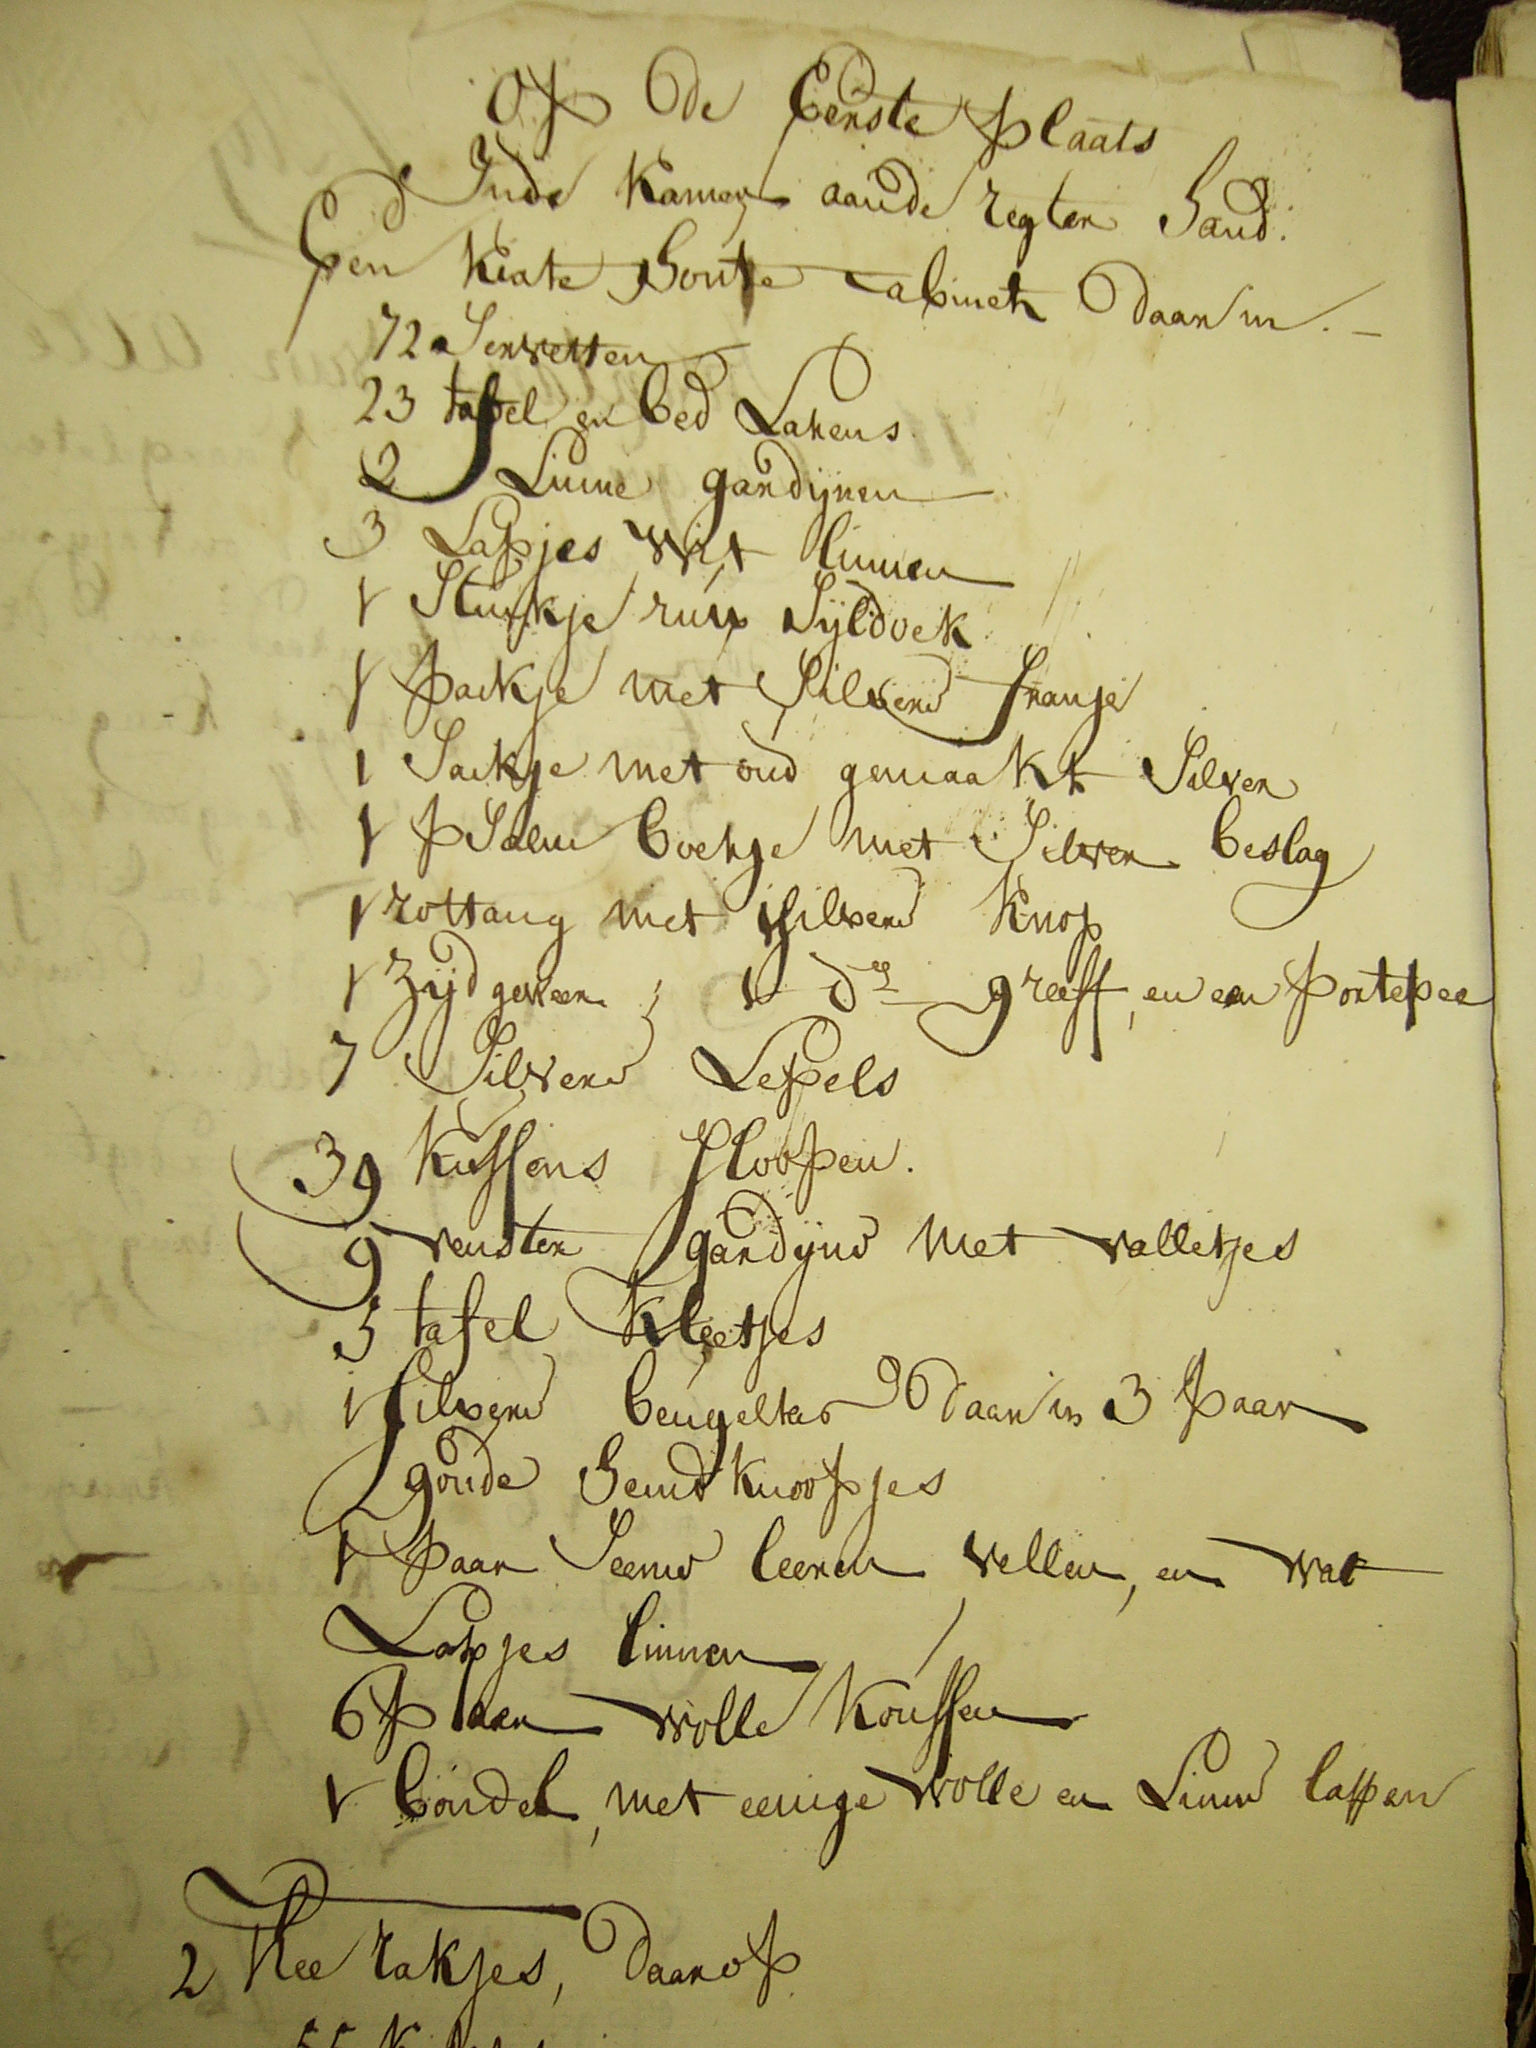 Op de Eerste plaats
Inde Kamer aande regter hand.
Een kiate houte cabinet daar in. —
72 Servetten
23 tafel en bed Lakens
2 Linne gardijnen
3 Lapjes wit linnen
1 Stukje ruw Sijldoek
1 packje met Silvere franje
1 Sackje met oud gemaakt Silver
1 psalm boekje met Silver beslag
1 rottang met silvere knop
1 Zijd geweer; 1 do greeff, en een portepee
7 Silvere Lepels
39 kussens sloopen.
9 venster gardijne met valletjes
5 tafel kleetjes
1 silvere beugeltas daar in 3 paar
goude hemd knoopjes
1 paar Seeme leeren vellen, en wat
Lapjes linnen
6 paar wolle koussen
1 bondel, met eenige wolle en Linne lappen
2 thee rakjes, daar op
55